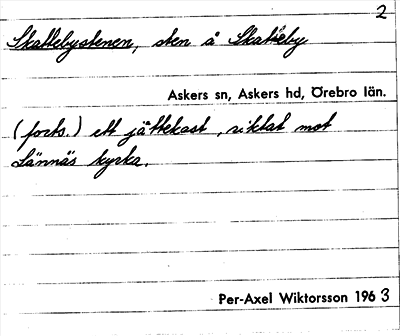 2
Skattebystenen, sten å Skatteby
Askers sn, Askers hd, Örebro län.
(forts.) ett jättekast, riktat mot
Lännäs kyrka.
Per-Axel Wiktorsson 1963